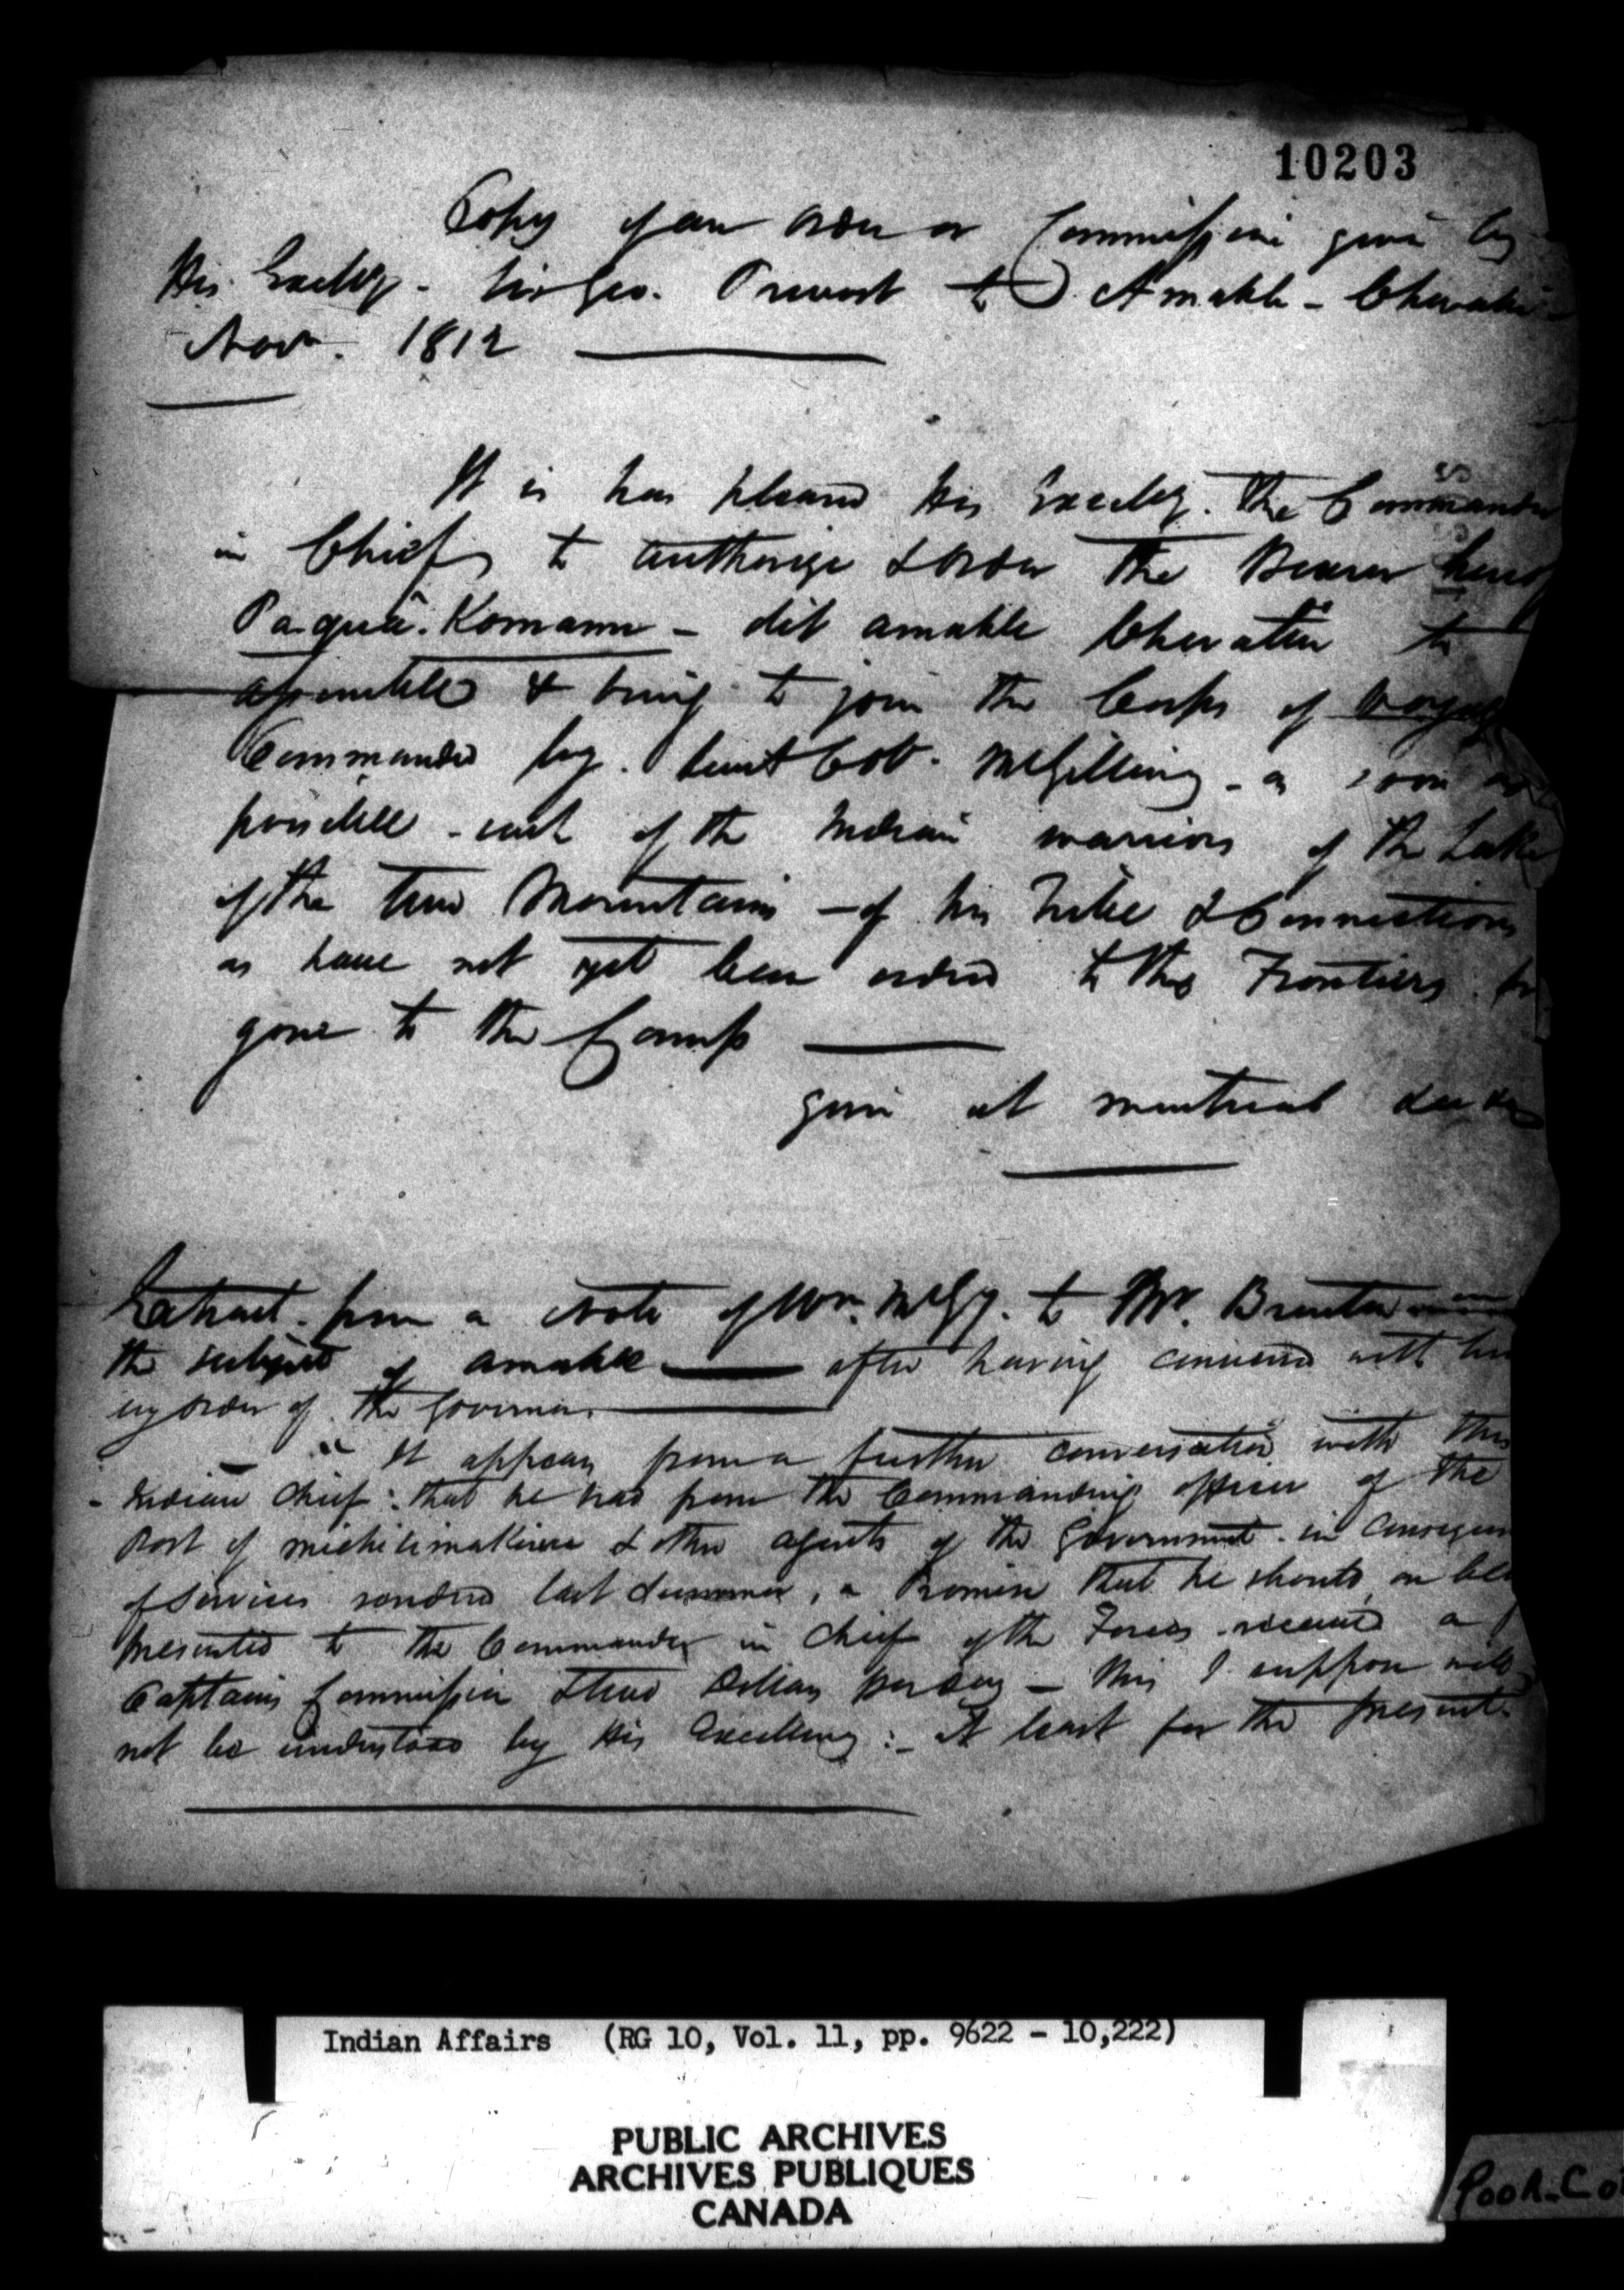 10203
Copy of an order or Commission given by
His Excelly. Sir Geo. Prevost to Amable - Chevalier
Novr. 1812
It is has pleased His Excelly. The Commander
in Chief to authorize & order the Bearer hereof
Paquâ. Komann - dit amable Chevalier to
assemble & bring to join the Corps of Voyag
Commanded by Lieut Col. McGillivray - as soon as
possible - such of the Indian warriors of the Lake
of the two Mountains - of his Tribe & Connections
as have not yet been ordered to the Frontiers or
gone to the Camp
given at montreal
Extract from a Note of Wm. McGy. to Mr. Brenton on
the subject of amable after having conversed with him
by order of the Governor.
" It appears from a further conversation with this
Indian chief: that he had from the Commanding officer of the
Post of michilimakinac & other agents of the Government in Consequen
of services rendered last summer, a Promise that he should on be
presented to the Commander in Chief of the Forces receive a
Captains Commission & two Dollars per day - this I suppose will
not be understood by His Excellency: - at least for the present.
Indian Affairs (RG 10, Vol. 11, pp. 9622 - 10,222)
PUBLIC ARCHIVES
ARCHIVES PUBLIQUES
CANADA